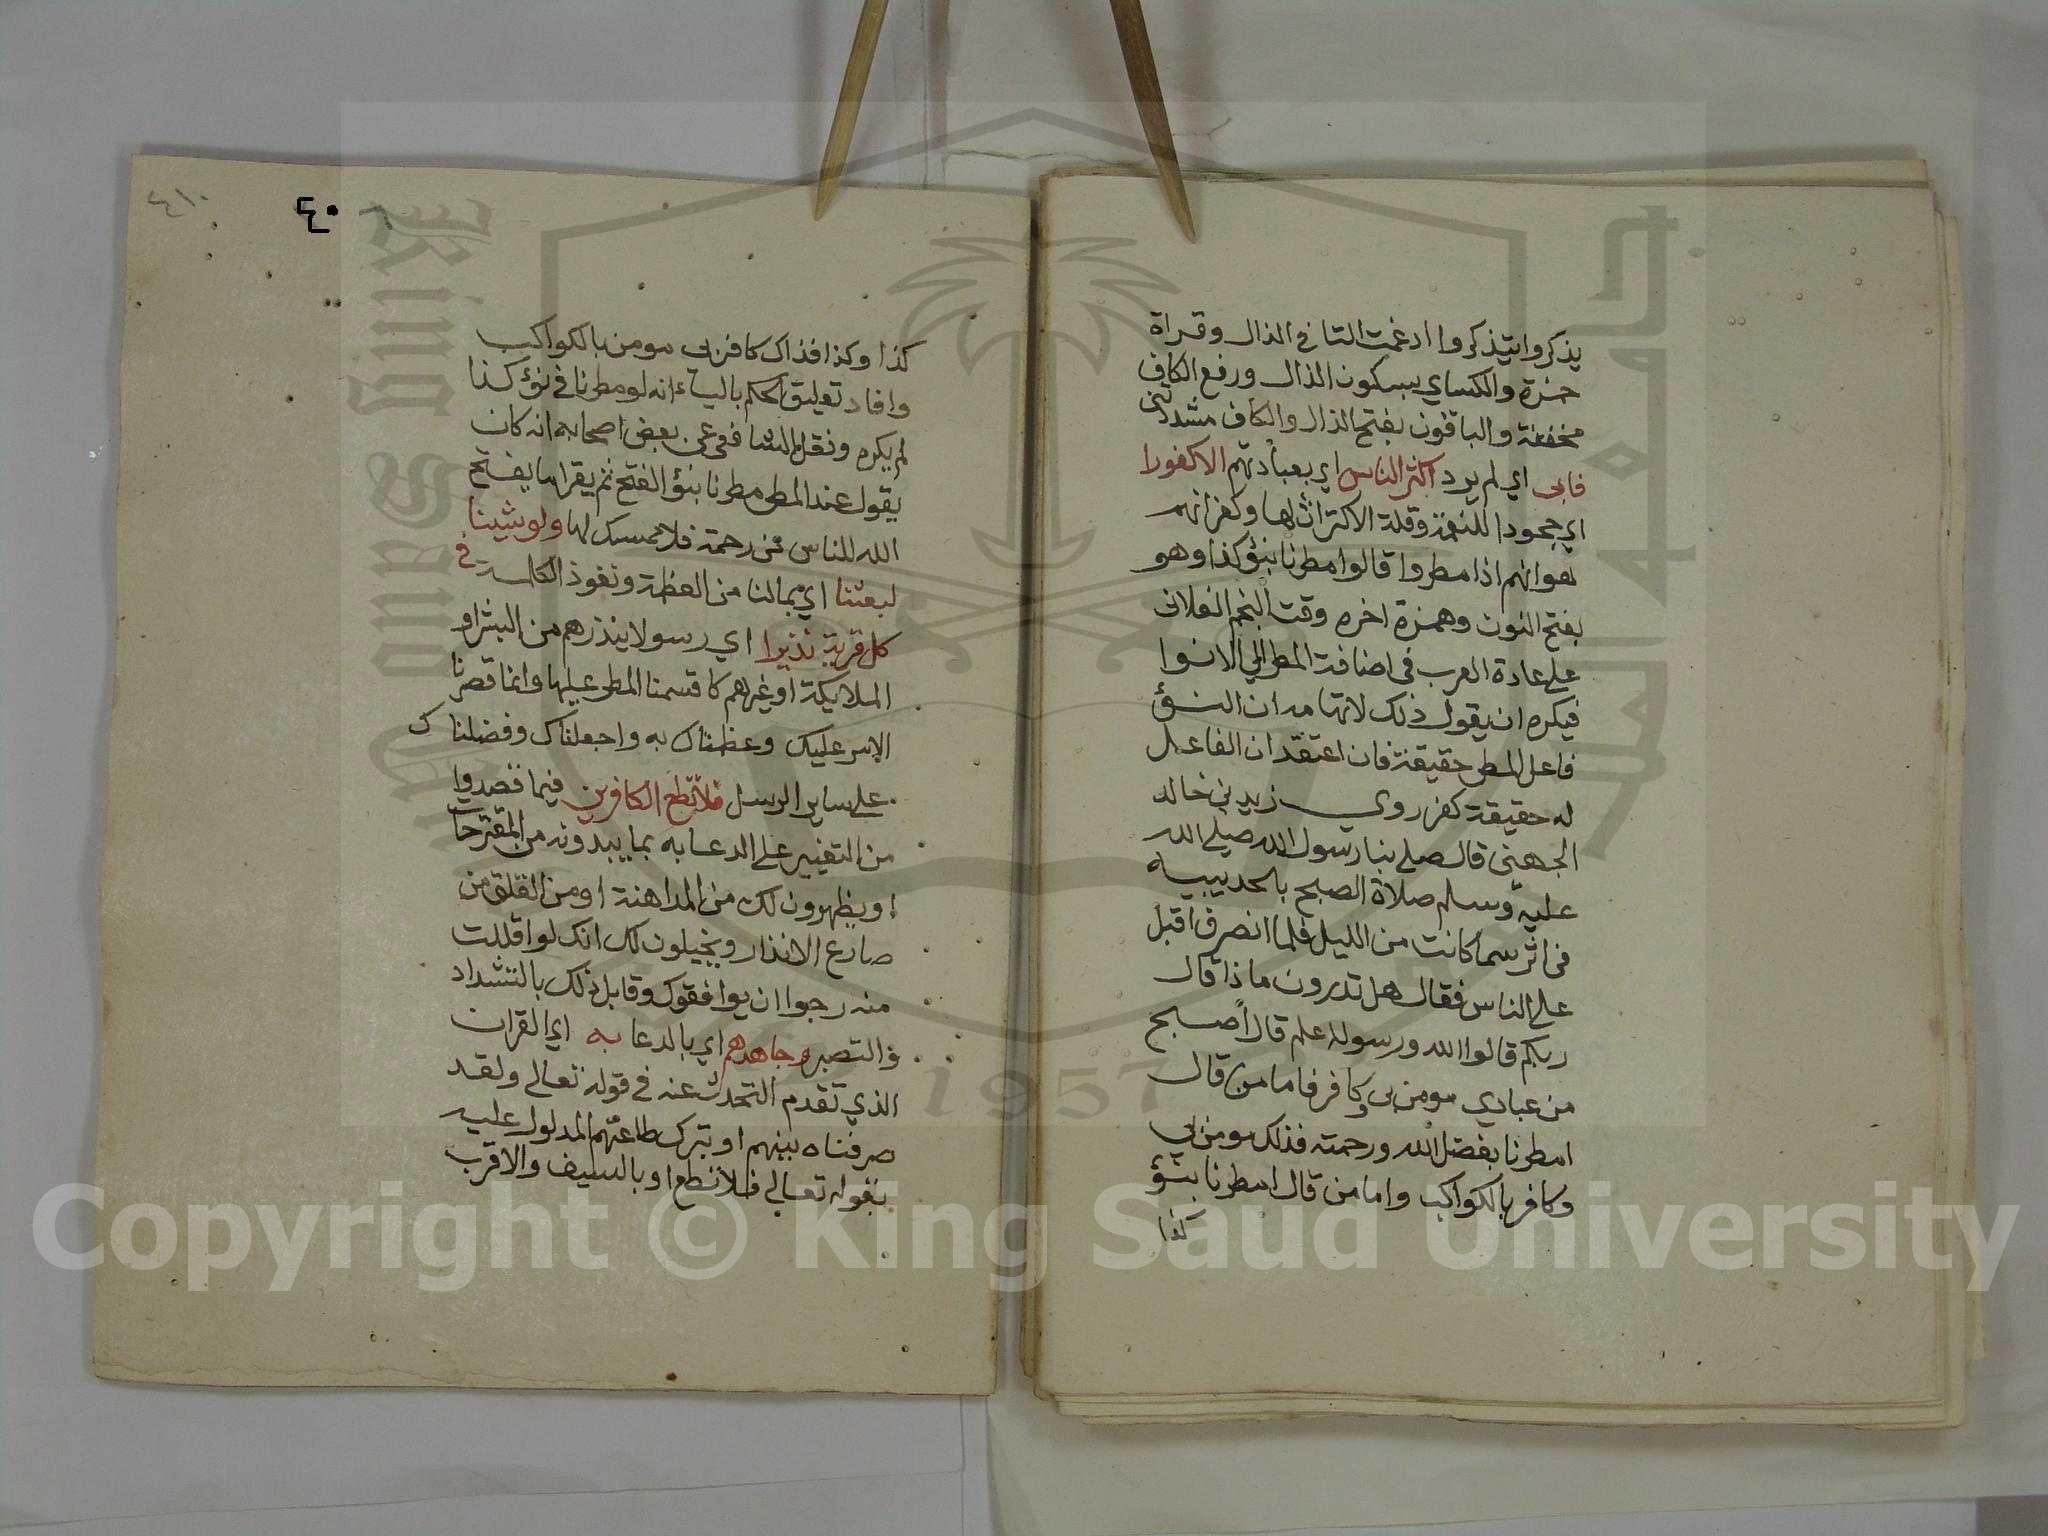 يذكروا يتذكروا ادغمت التا في الذال وقراة
حمزة والكساي بسكون الذال ورفع الكاف
مخففة والباقون بفتح الذال والكاف مشددتين
فابى اي لم يرد اكثر الناس اي بعبادتهم الا كفورا
اي جحودا للنعمة وقلة الاكتراث لها وكفرانهم
هو انهم اذا مطروا قالوا مطرنا بنؤ كذا وهو
بفتح النون وهمزة اخره وقت النجم الفلاني
على عادة العرب في اضافة المطر الي الانوا
فيكره ان يقول ذلك لانها مه ان النؤ
فاعل المطر حقيقة فان اعتقد ان الفاعل
له حقيقة كفر روي زيد بن خالد
الجهني قال صلى بنا رسول الله صلى الله
عليه وسلم صلاة الصبح بالحديبيه
في اثر سما كانت من الليل فلما انصرف اقبل
على الناس فقال هل تدرون ماذا قال
ربكم قالوا الله ورسوله علم قال اصبح
من عبادي مومن بى وكافر فاما من قال
امطرنا بفضل الله ورحمته فذلك مومن بي
وكافر بالكواكب واما من قال امطرنا بنؤ
كذا
٤٠
٤١٠
كذا وكذا فذاك كافر بى مومن بالكواكب
وافاد تعليق الحكم باليا انه لو مطرنا في نؤ كذا
لم يكره ونقل الشافعي عن بعض اصحابه انه كان
يقول عند المطر مطرنا بنؤ الفتح ثم يقرا ما يفتح
الله للناس من رحمة فلا ممسك لها ولو شينا
لبعثنا اي بمالنا من العظمة ونفوذ الكلمة في
كل قرية نذيرا اي رسولا ينذرهم من البشر او
الملايكة او غيرهم كما قسمنا المطر عليها وانما قصرنا
الامر عليك وعظمناك به واجعلناك وفضلناك
على ساير الرسل فلا تطع الكافرين فيما قصدوا
من التغيير على الدعا به بما يبدونه من المقترحات
او يظهرون لك من المداهنة او من القلق من
صادع الانذار ويخيلون لك انك لو اقللت
منه رجوا ان يوافقوك وقابل ذلك بالتشداد
والتصبر وجاهدهم اي بالدعا به اي القران
الذي تقدم التحدث عنه في قوله تعالى ولقد
صرفناه بينهم او بترك طاعتهم المدلول عليه
بقوله تعالى فلا تطع او بالسيف والاقرب
Copyright © King Saud University
King Saud University
جامعة الملك سعود
1957